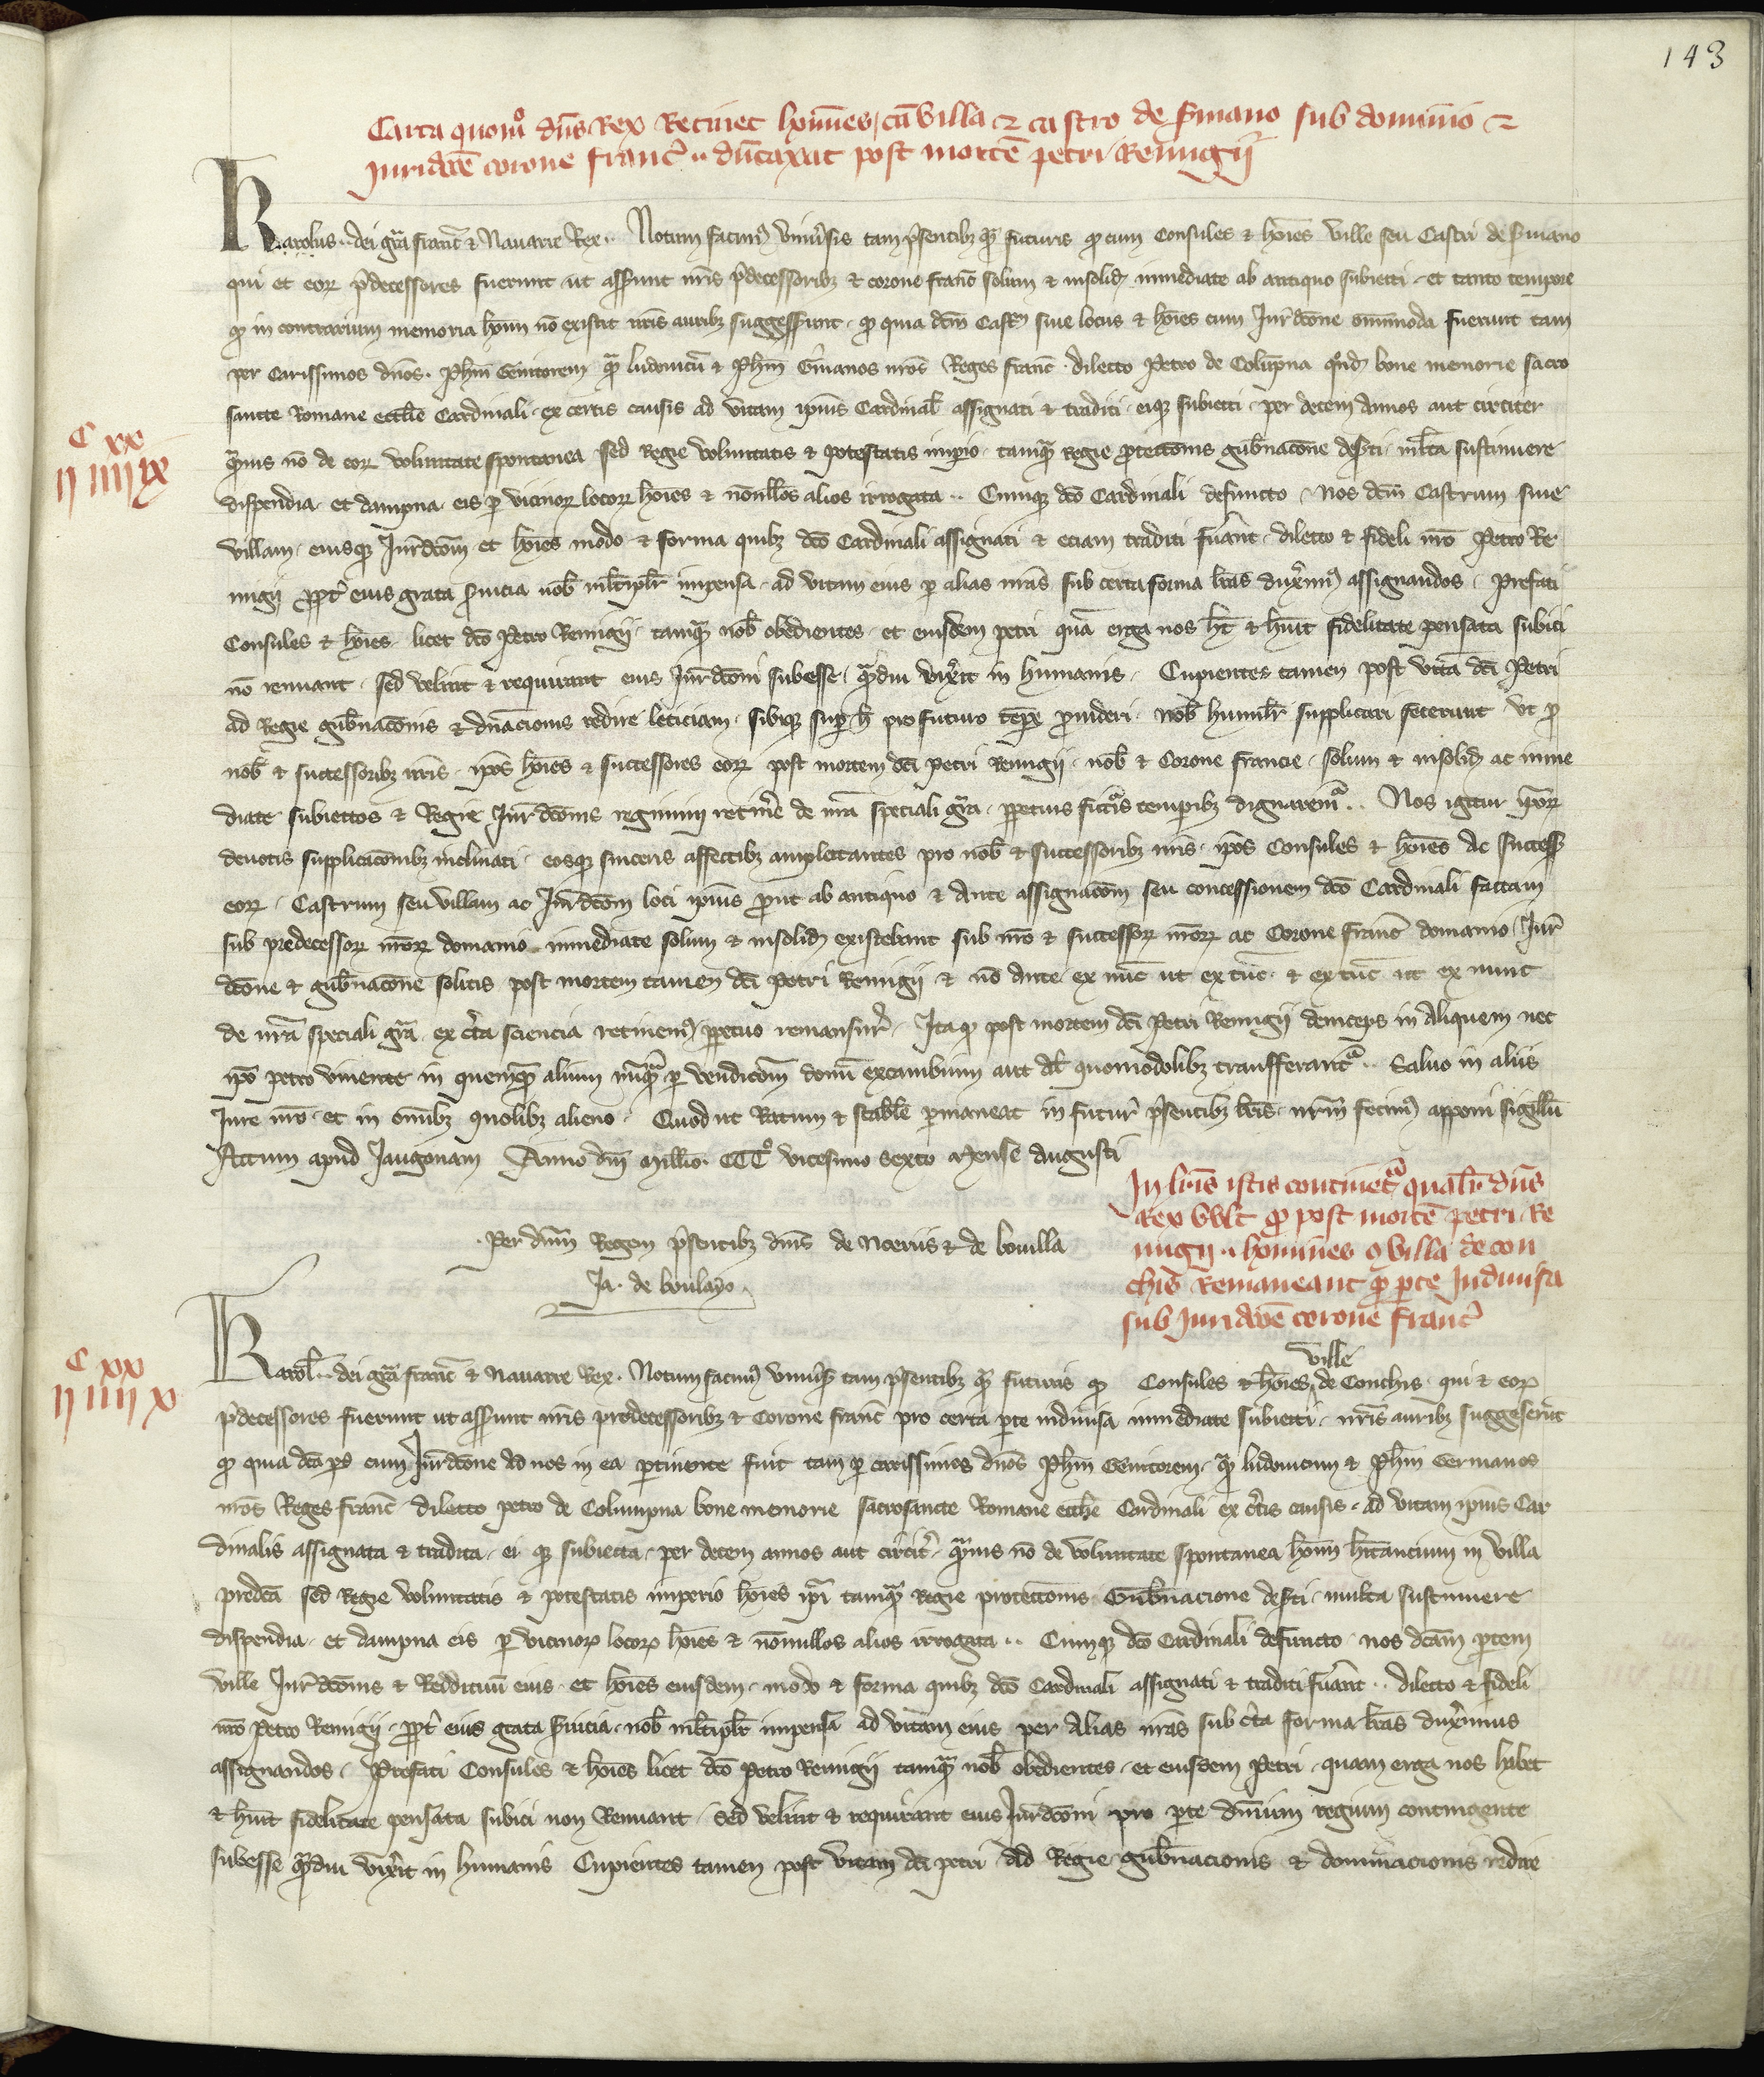 143
Carta quomo dns Rex Retinet homines cu villa et castro de Srinano sub dominio et
Juridicoe corone franc dutaxat post morte petri Remigii
Karolus dei gra franc et Nauarre Rex Notum facim9 vniu'sis tam p'sentib3 qa futuris q cum Consules et hoies ville seu Castri de
qui et eor p'decessores fuerunt ut asserunt nris p'decessorib3 et corone franc solum et insolid inmediate ab antiquo subiecti et tanto tempore
q in contrarium memoria hoim no existit nris aurib3 suggesserunt q quia dcm Castr siue locus et hoies cum Jur'dcone omnimoda fuerunt tam
per Carissimos dnos Phm Genitorem qa ludouicu et Phm G'manos nros Reges franc dilecto Petro de Colupna qnd bone memorie sacro
sancte Romane eccle Cardinali ex certis causis ad vitam ipius Cardinal assignati et traditi eiq3 subiecti per decem Annos aut circiter
C xx
ij iiij ix
qauis no de eor voluntate spontanea sed Regie voluntatis et potestatis imp'io tamqa Regie protectonis gub'nacone desti mlta sustinuere
dispendia et dampna eis p vicinor locor hoies et nonllos alios irrogata Cumq3 dco Cardinali defuncto Nos dcm Castrum siue
villam eiusq3 Jur'dcom et hoies modo et forma quib3 dco Cardinali assignati et eciam traditi fu'ant dilecto et fideli nro Petro Re
migii ppt' eius grata s'uicia nob mltiplr impensa ad vitam eius p alias nras sub certa forma lras dux'im9 assignandos Prefati
Consules et hoies licet dco Petro Remigii tamqa nob obedientes et eiusdem petri qua erga nos ht et huit fidelitate pensata subici
no renuant sed velint et requirant eius Jur'dconi subesse qadiu vix'it in humanis Cupientes tamen post vita dci Petri
ad Regie gub'naconis et dnacionis redire leticiam sibiq3 sup h pro futuro tepe prouideri nob humilr supplicari fecerunt vt p
nob et successorib3 nris ipos hoies et successores eor post mortem dci Petri Remigii nob et Corone francie solum et insolid ac inme
diate subiectos et Regie Jur'dconis regimini retin'e de nra speciali gra ppetuis futis temporib3 dignarema Nos igitur ipor
deuotis supplicaconib3 inclinati eosq3 sinceris affectib3 amplectantes pro nob et successorib3 nris ipos Consules et hoies Ac success
eor Castrum seu villam ac Jur'dcom loci ipius prout ab antiquo et Ante assignacom seu concessionem dco Cardinali factam
sub predecessor nror domanio inmediate solum et insolid existebant sub nro et successor nror ac Corone franc domanio Jur'
dcone et gub'nacone solitis post mortem tamen dci Petri Remigii et no Ante ex nuc ut ex tuc et ex tuc ut ex nunc
de nra speciali gra ex c'ta sciencia retinem9 ppetuo remansur' Itaq3 post mortem dci Petri Remigii deinceps in Aliquem nec
ipo petro viuente in quemqa alium nuqa p vendicom donu excambium aut al quomodolib3 transferanta Saluo in aliis
Jure nro et in omib3 quolib3 alieno Quod ut Ratum et stable pmaneat in futur' p'sentib3 lris nrm fecim9 apponi sigillu
Actum apud Jaugonam Anno dni Millio CCCo vicesimo Sexto Mense Augusti
In lris istis continet'a qualr dns
Rex vult q post morte petri Re
migii homines et villa de con
chis Remaneant p pte Indiuisa
sub Juridicoe corone franc
Per dnm Regem p'sentib3 dnis de Noeriis et de bouilla
Ja. de boulayo
C xx
ij iiij x
Karol dei gra franc et Nauarre Rex. Notum facim9 vniu's tam p'sentib3 qa futuris q Consules et hoies ville de Conchis qui et eor
p'decessores fuerunt ut asserunt nris predecessorib3 et Corone franc pro certa pte indiuisa inmediate subiecti nris aurib3 suggeserut
q quia dca ps cum Jur'dcone ad nos in ea ptinente fuit tam p carissimos dnos Phm Genitorem qa ludouicum et Phm Germanos
nros Reges franc dilecto petro de Columpna bone memorie sacrosancte Romane eccle Cardinali ex c'tis causis ad vitam ipius Car
dinalis assignata et tradita ei q3 subiecta per decem annos aut circit' qauis no de voluntate spontanea hoim hitancium in villa
predca sed Regie voluntatis et potestatis imperio hoies ipi tamqa Regie protectonis Gub'nacione desti multa sustinuere
dispendia et dampna eis p vicinor locor hoies et nonnullos alios irrogata Cumq3 dco Cardinali defuncto nos dcam ptem
ville Jur'dconis et Reddituu eius et hoies eiusdem modo et forma quib3 dco Cardinali assignati et traditi fu'ant dilecto et fideli
nro Petro Remigii ppt' eius grata s'uicia nob mltiplr impensa ad vitam eius per Alias nras sub c'ta forma lras dux'imus
assignandos Prefati Consules et hoies licet dco Petro Remigii tamqa nob obedientes et eiusdem Petri quam erga nos habet
et huit fidelitate pensata subici non Renuant Sed velint et requirant eius Jur'dconi pro pte dnium regium contingente
subesse qadiu vix'it in humanis Cupientes tamen post vitam dci petri ad Regie gub'nacionis et dominacionis redire